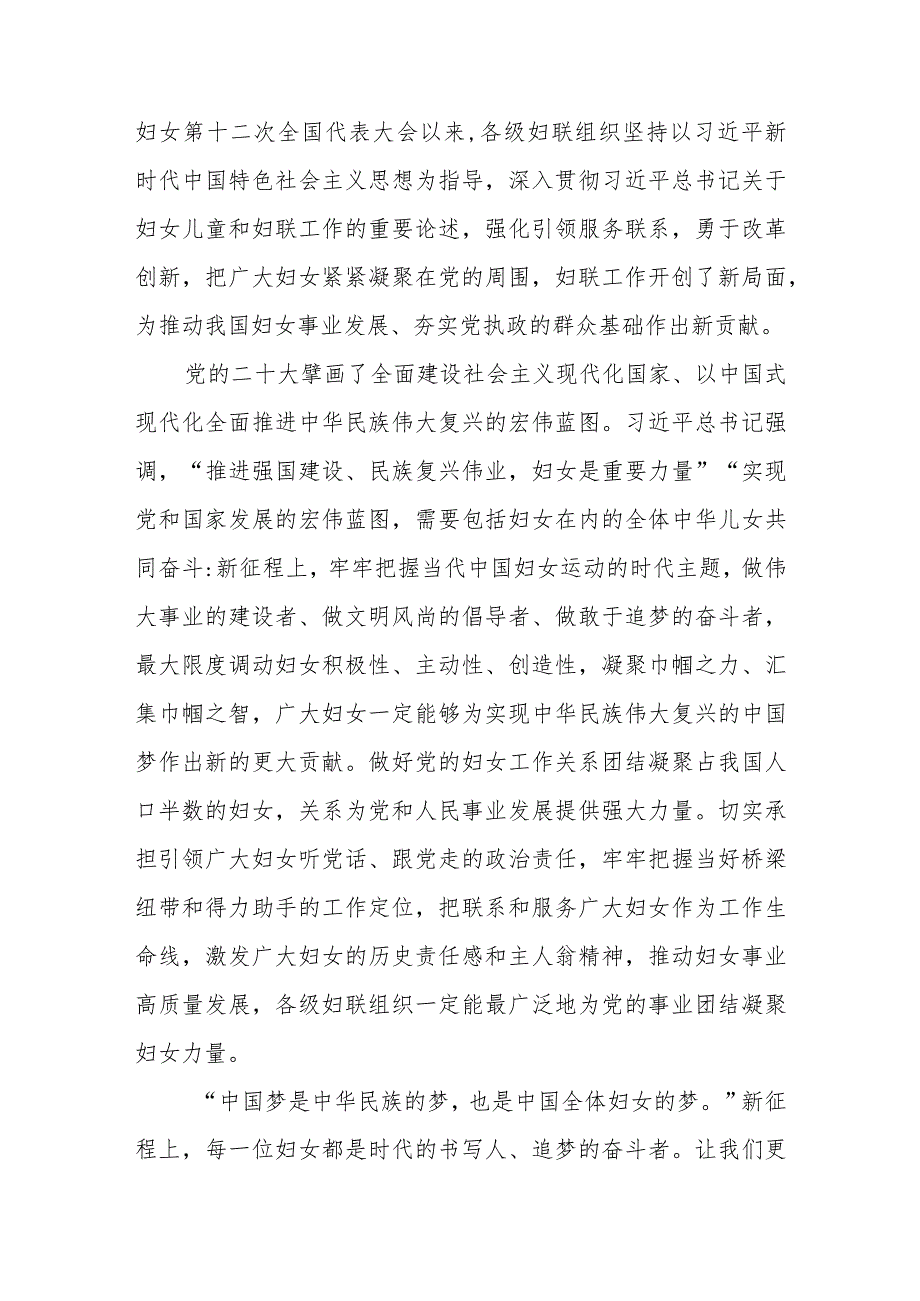 妇女第十二次全国代表大会以来,各级妇联组织坚持以习近平新
时代中国特色社会主义思想为指导，深入贯彻习近平总书记关于
妇女儿童和妇联工作的重要论述，强化引领服务联系，勇于改革
创新，把广大妇女紧紧凝聚在党的周围，妇联工作开创了新局面，
为推动我国妇女事业发展、夯实党执政的群众基础作出新贡献。
党的二十大擘画了全面建设社会主义现代化国家、以中国式
现代化全面推进中华民族伟大复兴的宏伟蓝图。习近平总书记强
调，“推进强国建设、民族复兴伟业，妇女是重要力量”“实现
党和国家发展的宏伟蓝图，需要包括妇女在内的全体中华儿女共
同奋斗:新征程上，牢牢把握当代中国妇女运动的时代主题，做伟
大事业的建设者、做文明风尚的倡导者、做敢于追梦的奋斗者，
最大限度调动妇女积极性、主动性、创造性，凝聚巾帼之力、汇
集巾帼之智，广大妇女一定能够为实现中华民族伟大复兴的中国
梦作出新的更大贡献。做好党的妇女工作关系团结凝聚占我国人
口半数的妇女，关系为党和人民事业发展提供强大力量。切实承
担引领广大妇女听党话、跟党走的政治责任，牢牢把握当好桥梁
纽带和得力助手的工作定位，把联系和服务广大妇女作为工作生
命线，激发广大妇女的历史责任感和主人翁精神，推动妇女事业
高质量发展，各级妇联组织一定能最广泛地为党的事业团结凝聚
妇女力量。
“中国梦是中华民族的梦，也是中国全体妇女的梦。”新征
程上，每一位妇女都是时代的书写人、追梦的奋斗者。让我们更